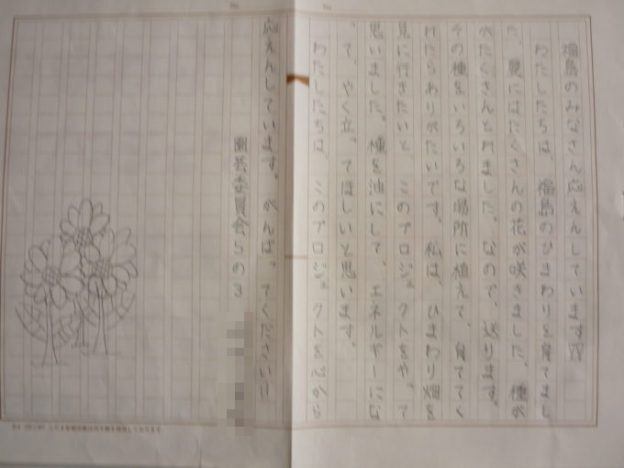 福島のみなさん応えんしています!!
わたしたちは、福島のひまわりを育てまし
た。夏にはたくさんの花が咲きました。種が
たくさんとれました。なので、送ります。
その種をいろいろな場所に植えて、育ててく
れたらありがたいです。私は、ひまわり畑を
見に行きたいと、このプロジェクトをやって
思いました。種を油にして、エネルギーに
って、やく立ってほしいと思います。
わたしたちは、このプロジェクトを
応えんしています。がんばってください!!
園芸委員会5の3